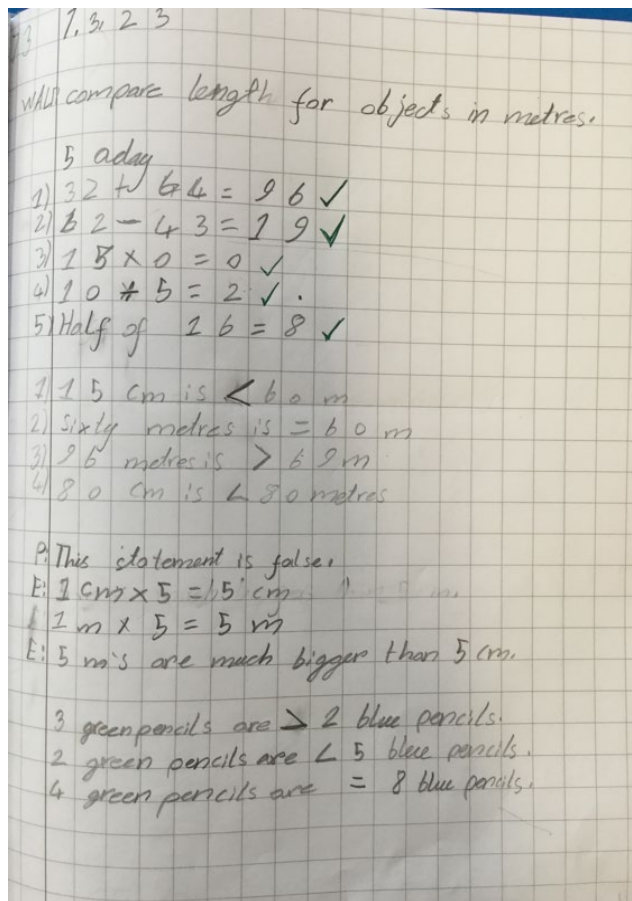 7.3.23
WALT compare length for objects in metres.
5 aday
1) 32 + 64 = 96 ✓
2) 62 - 43 = 19 ✓
3) 15 x 0 = 0 ✓
4) 10 ÷ 5 = 2 ✓.
5) Half of 16 = 8 ✓
1) 15 cm is < 60 m
2) sixty metres is = 60 m
3) 96 metres is > 69m
4) 80 cm is < 80 metres
P: This statement is false.
E: 1 cm x 5 = 5 cm
1 m x 5 = 5 m
E: 5 m's are much bigger than 5 cm.
3 green pencils are > 2 blue pencils.
2 green pencils are < 5 blue pencils.
4 green pencils are = 8 blue pencils.